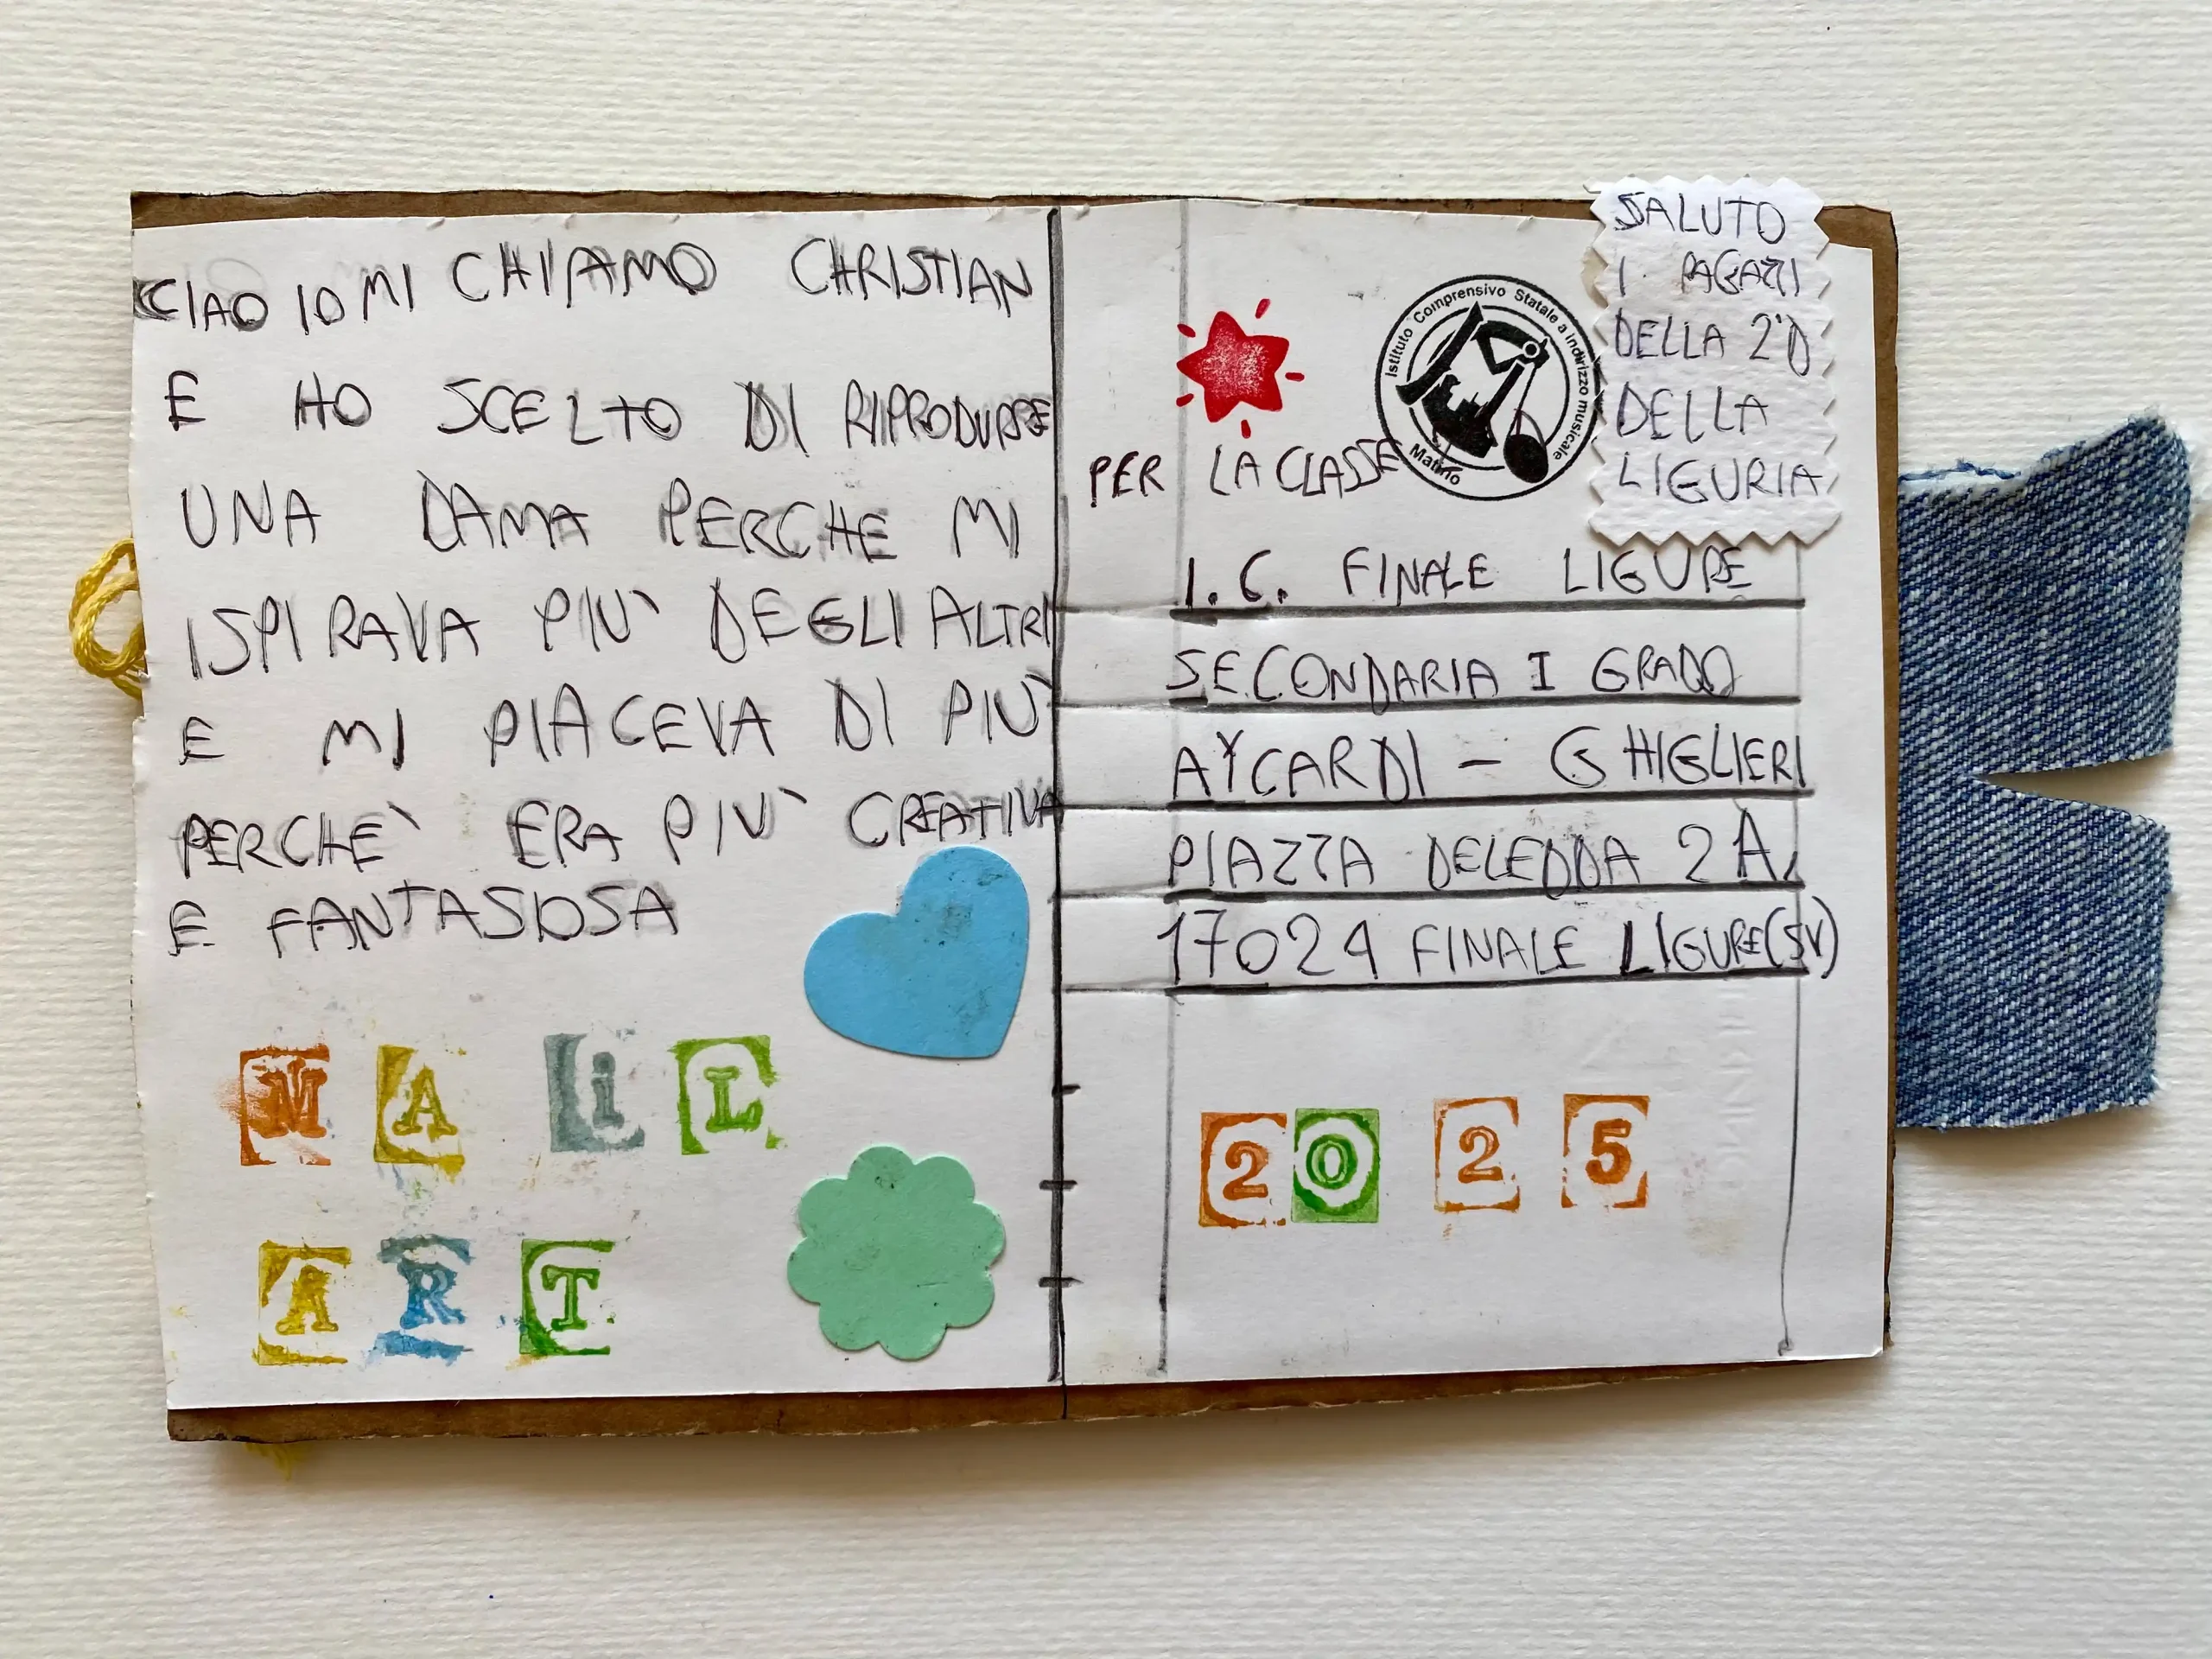 CIAO IO MI CHIAMO CHRISTIAN
E HO SCELTO DI RIPRODURRE
UNA DAMA PERCHE MI
ISPIRAVA PIU` DEGLI ALTRI
E MI PIACEVA DI PIU`
PERCHE` ERA PIU` CREATIVA
E FANTASIOSA
MAiL
ART
SALUTO
I RAGAZZI
DELLA 2°D
DELLA
LIGURIA
Istituto Comprensivo Statale a indirizzo musicale
Matino
PER LA CLASSE
I.C. FINALE LIGURE
SECONDARIA I GRADO
AYCARDI - GHIGLIERI
PIAZZA DELEDDA 2A,
17024 FINALE LIGURE (SV)
2025